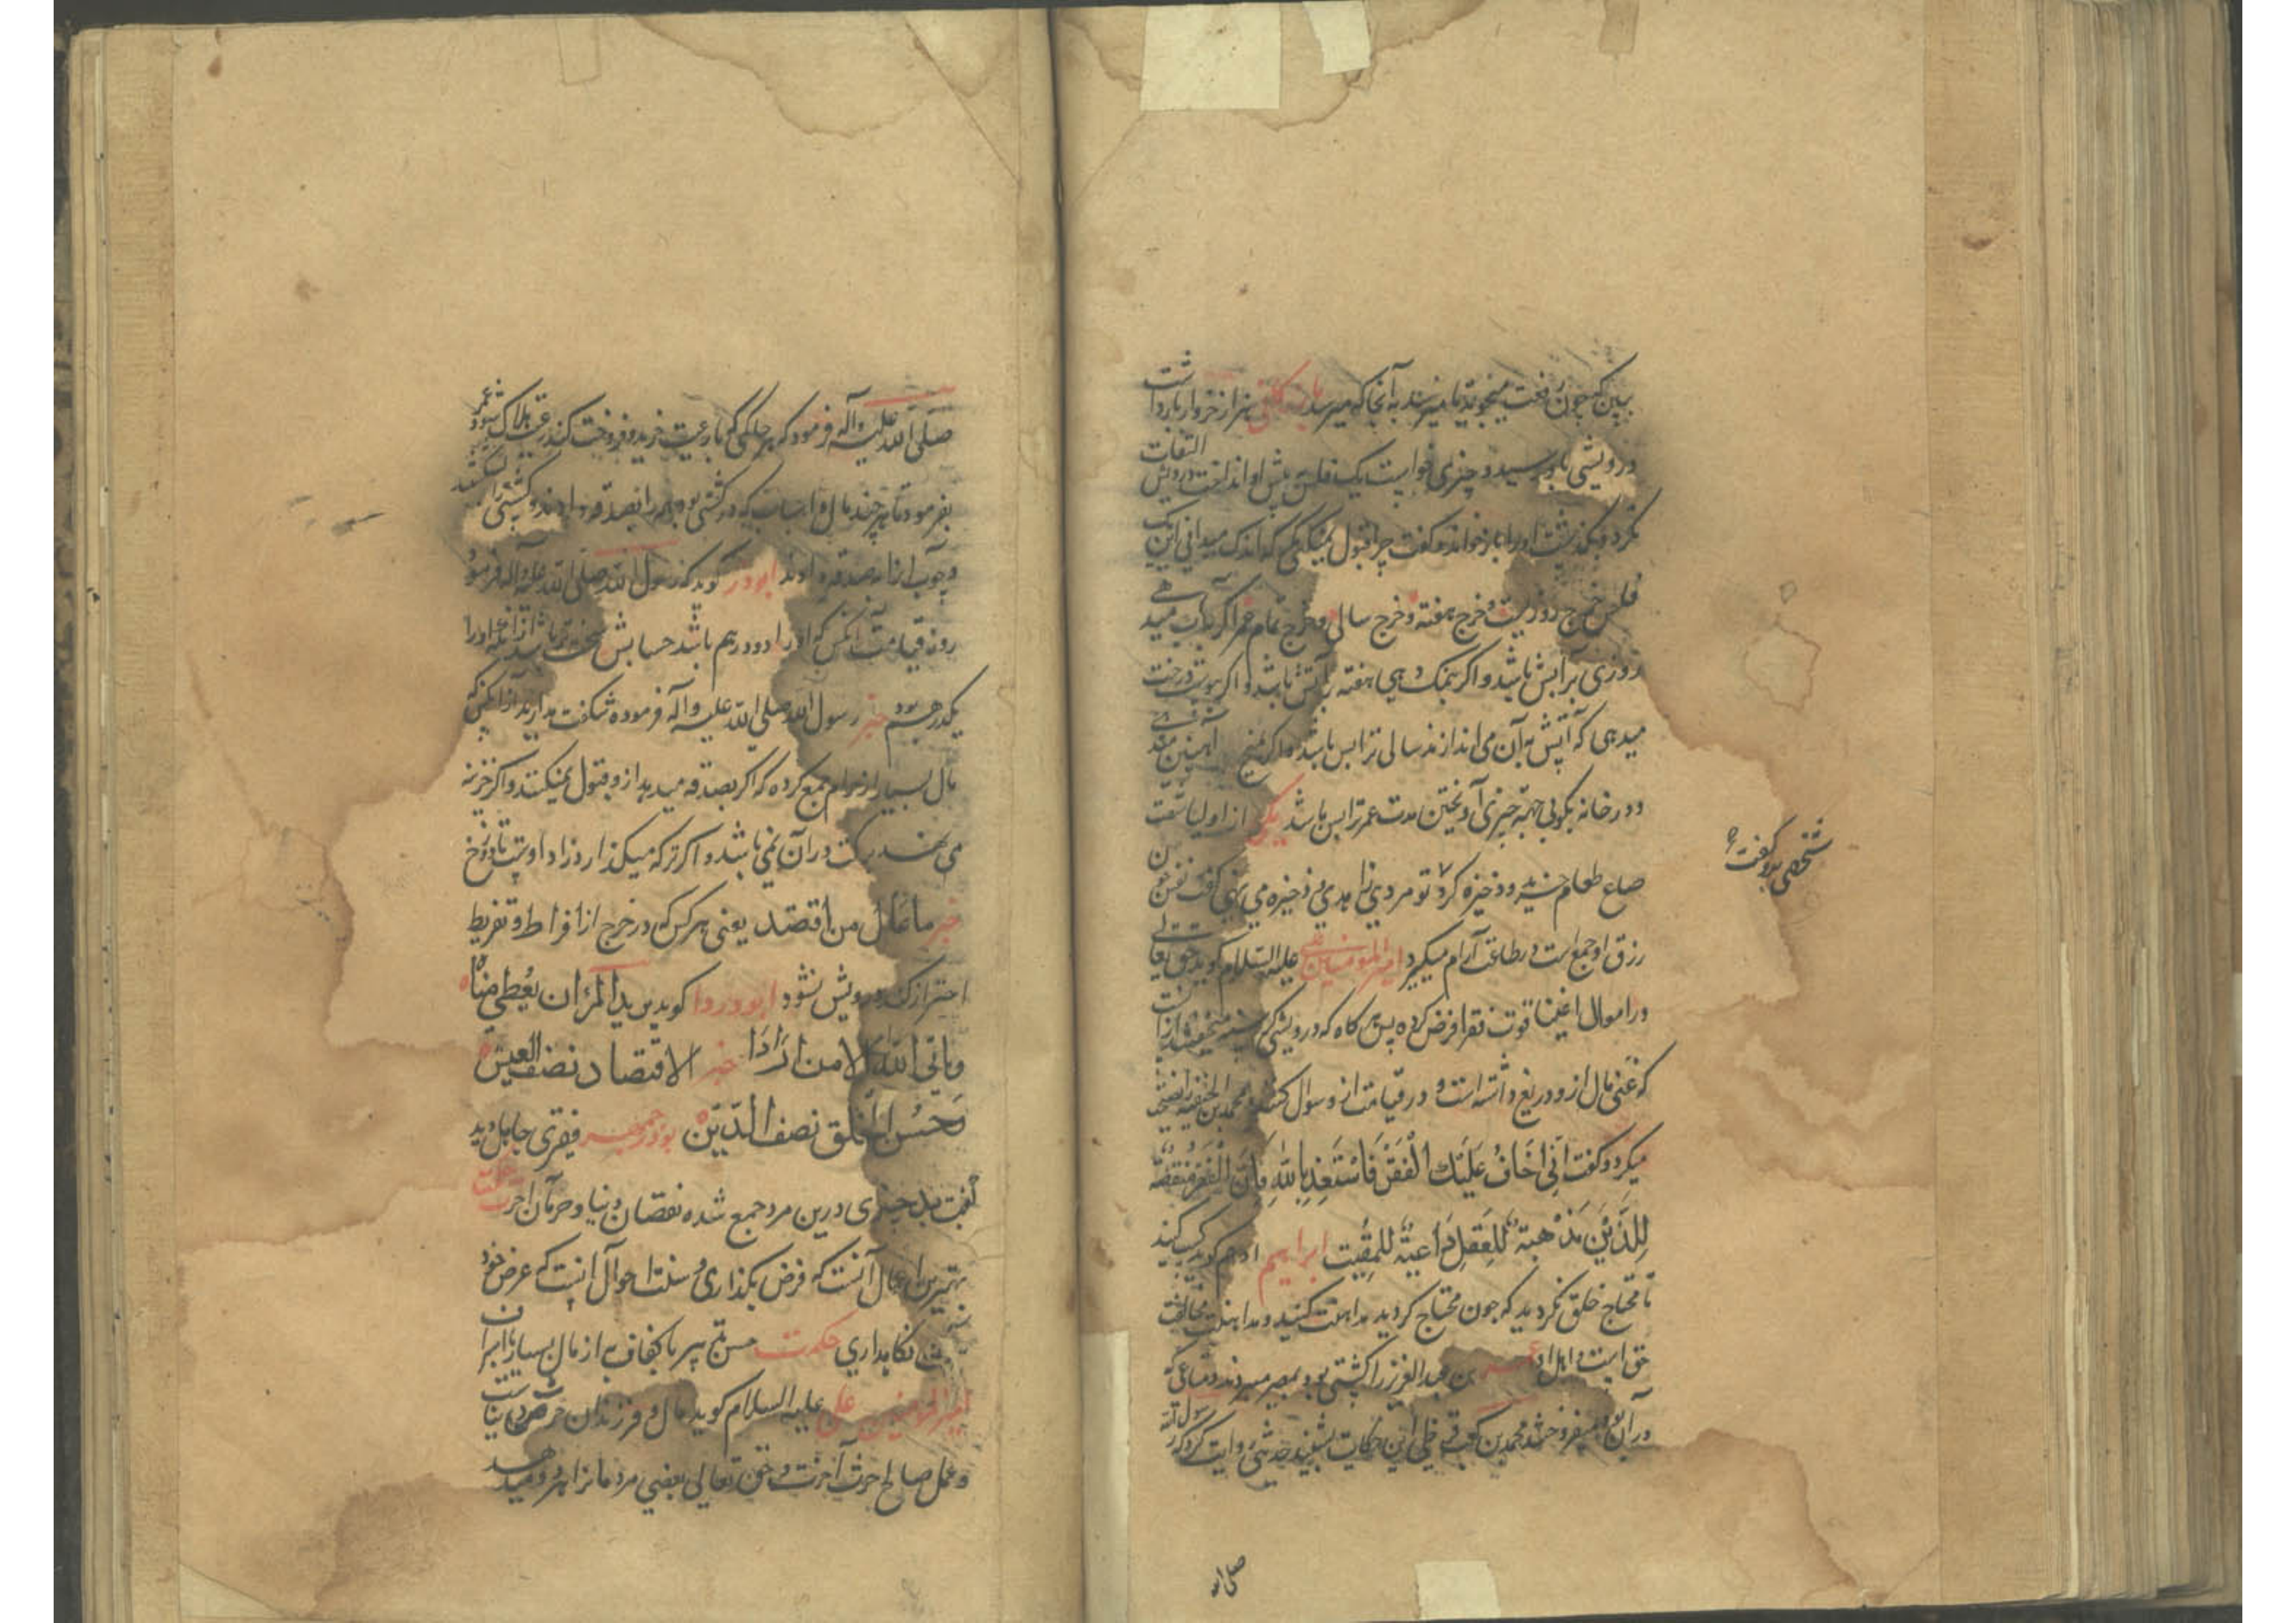 ببین که چون نعمت میجوید تا میرسد به آنجا که میرسد هزار خروار بار داشت
درویشی باو رسید و چیزی خواست یک فلس پیش او انداخت درویش التفات
نکرد و بگذشت او را باز خواند و گفت چرا قبول نمیکنی که اندک میدانی این یک
فلس خرج روزیست و خرج هفته و خرج سالی و خرج تمام عمر اگر بآب میدهی
روزی ترا بس باشد و اگر بنمک دهی هفته ترا بس باشد و اگر بپوست درخت
میدهی که آتش به آن می اندازند سالی ترا بس باشد و اگر بمیخ آهنین میدهی
و در خانه بکوبی جهة چیزی آویختن مدت عمر ترا بس باشد یکی از اولیا شصت
صاع طعام خرید و ذخیره کرد تو مردی زاهدی ذخیره می نهی گفت نفس چون
شخصی بدو گفت
رزق او جمع است در طاعت آرام میگیرد امیر المؤمنین علی علیه السلام گوید حق تعالی
در اموال اغنیا قوت فقرا فرض کرده پس هر گاه که درویشی گرسنه
که غنی مال از و دریغ داشته است و در قیامت از و سوال کنند و محمد بن الحنفیه را نصیحت
میکرد و گفت انی اخاف علیک الفقر فاستعذ بالله فان الفقر منقصة
للدین مذهبة للعقل داعیة للمقت ابراهیم ادهم گوید کسب کنید
تا محتاج خلق نگردید که چون محتاج گردید مداهنت کنید و مداهنت مخالفت
حق است و اهل او عمر بن عبد العزیز را کشتی بود بمصر میبردند و متاعی که
در آن بود میفروختند محمد بن کعب قرظی این حکایت بشنید حدیثی روایت کرد که رسول الله
صلی الله
صلی الله علیه و آله فرمود که هر حاکمی که با رعیت خرید و فروخت کند رعیت هلاک شود عمر
بفرمود تا هر چند مال و اسباب که در کشتی بود همه را بصدقه دادند و کشتی را بشکستند
و چوب آنرا بصدقه دادند ابوذر گوید که رسول الله صلی الله علیه و آله فرمود
روز قیامت آنکس که او را دو درهم باشد حسابش سخت تر باشد از آنکه او را
یکدرهم بود خبر رسول الله صلی الله علیه و آله فرموده شگفت مدارید از آنکس که
مال بسیار از حرام جمع کرده که اگر بصدقه میدهد از و قبول نمیکنند و اگر خزینه
می نهد برکت در آن نمی باشد و اگر ترکه میگذارد زاد اوست تا دوزخ
خبر ما عال من اقتصد یعنی هر کس که در خرج از افراط و تفریط
احتراز کند درویش نشود ابو دردا گوید یرید المرء ان یعطی مناه
و یابی الله الا من ارادا خبر الاقتصاد نصف العیش
و حسن الخلق نصف الدین بوذرجمهر فقری جاهل دید
گفت بد چیزی درین مرد جمع شده نقصان دنیا و حرمان آخرت
بهترین اعمال آنست که فرض بگذاری و سنت احوال آنست که عرض خود
نگاهداری حکمت حسن تدبیر با کفاف به از مال بسیار با اسراف
امیر المؤمنین علی علیه السلام گوید مال و فرزندان حرث دنیاست
و عمل صالح حرث آخرت و حق تعالی بعضی مردمانرا هر دو میدهد